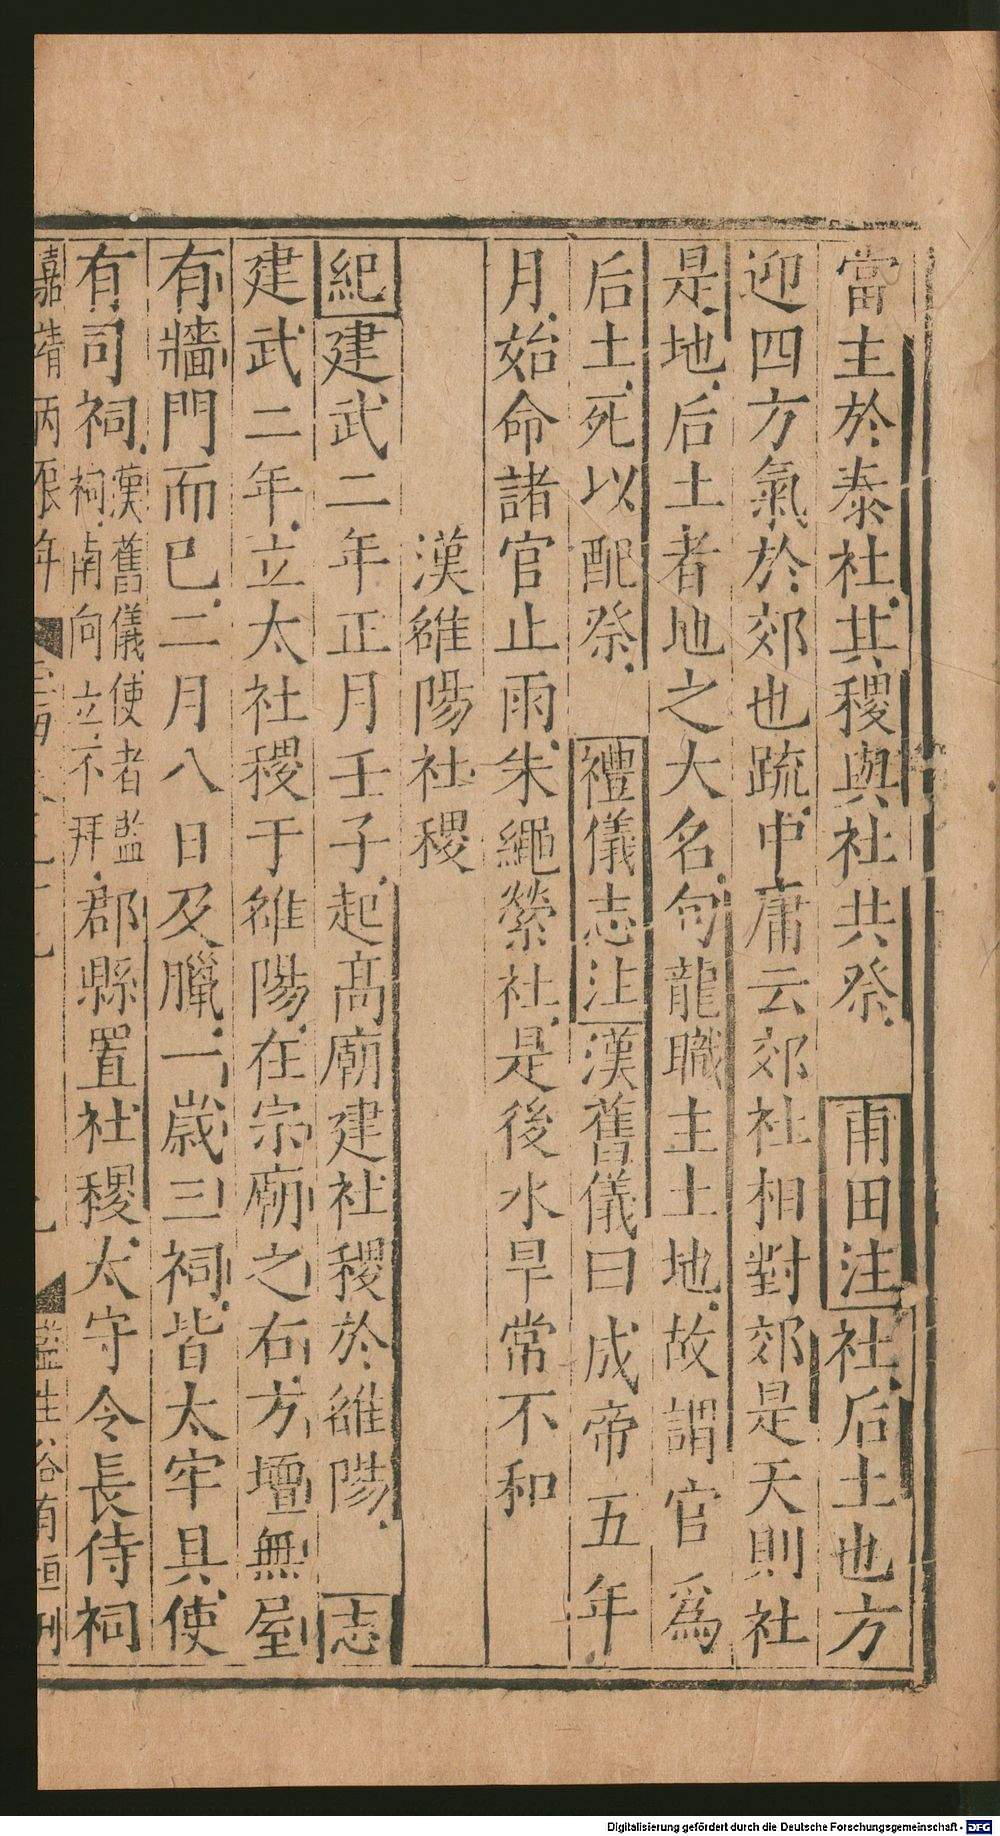 當主於泰社其稷與社共祭 甫田注社后土也方
迎四方氣於郊也疏中庸云郊社相對郊是天則社
是地后土者地之大名句龍職主土地故謂官爲
后土死以配祭 禮儀志注漢舊儀曰成帝五年
月始命諸官止雨朱繩縈社是後水旱常不和
漢雒陽社稷
紀建武二年正月壬子起高廟建社稷於雒陽 志
建武二年立太社稷于雒陽在宗廟之右方壇無屋
有牆門而已二月八日及臘一歲三祠皆太牢具使
有司祠漢舊儀使者監祠南向立不拜郡縣置社稷太守令長侍祠
嘉靖丙辰年 監生谷有恒刊
Digitalisierung gefördert durch die Deutsche Forschungsgemeinschaft - DFG